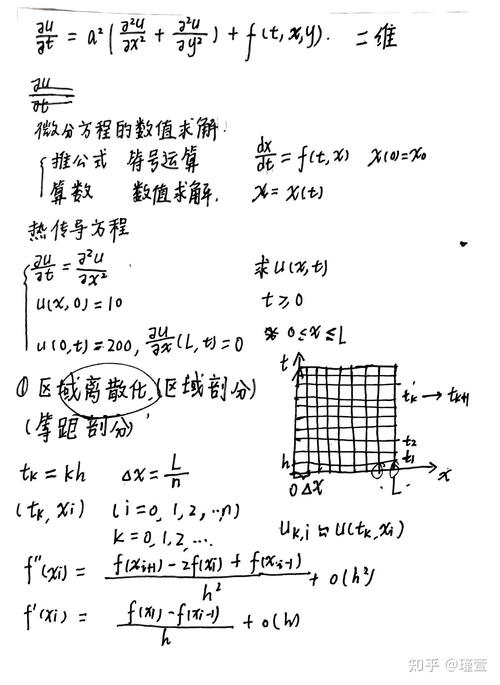 ∂u/∂t = a²(∂²u/∂x² + ∂²u/∂y²) + f(t,x,y). 二维
∂u/∂t
微分方程的数值求解.
{ 推公式 符号运算 dx/dt = f(t,x) x(0)=x₀
算数 数值求解. x = x(t)
热传导方程
{ ∂u/∂t = ∂²u/∂x² 求 u(x,t)
u(x,0) = 10 t ≥ 0
u(0,t) = 200, ∂u/∂x(L,t) = 0 0≤x≤L
① 区域离散化 (区域剖分)
(等距剖分)
t
tₖ → tₖ₊₁
t₂
h t₁
0 Δx L x
tₖ = kh Δx = L/n
(tₖ, xᵢ) (i=0,1,2,…n)
k=0,1,2,… uₖ,ᵢ ≈ u(tₖ,xᵢ)
f''(xᵢ) = (f(xᵢ₊₁) - 2f(xᵢ) + f(xᵢ₋₁))/h² + o(h²)
f'(xᵢ) = (f(xᵢ) - f(xᵢ₋₁))/h + o(h)
知乎 @瑾萱